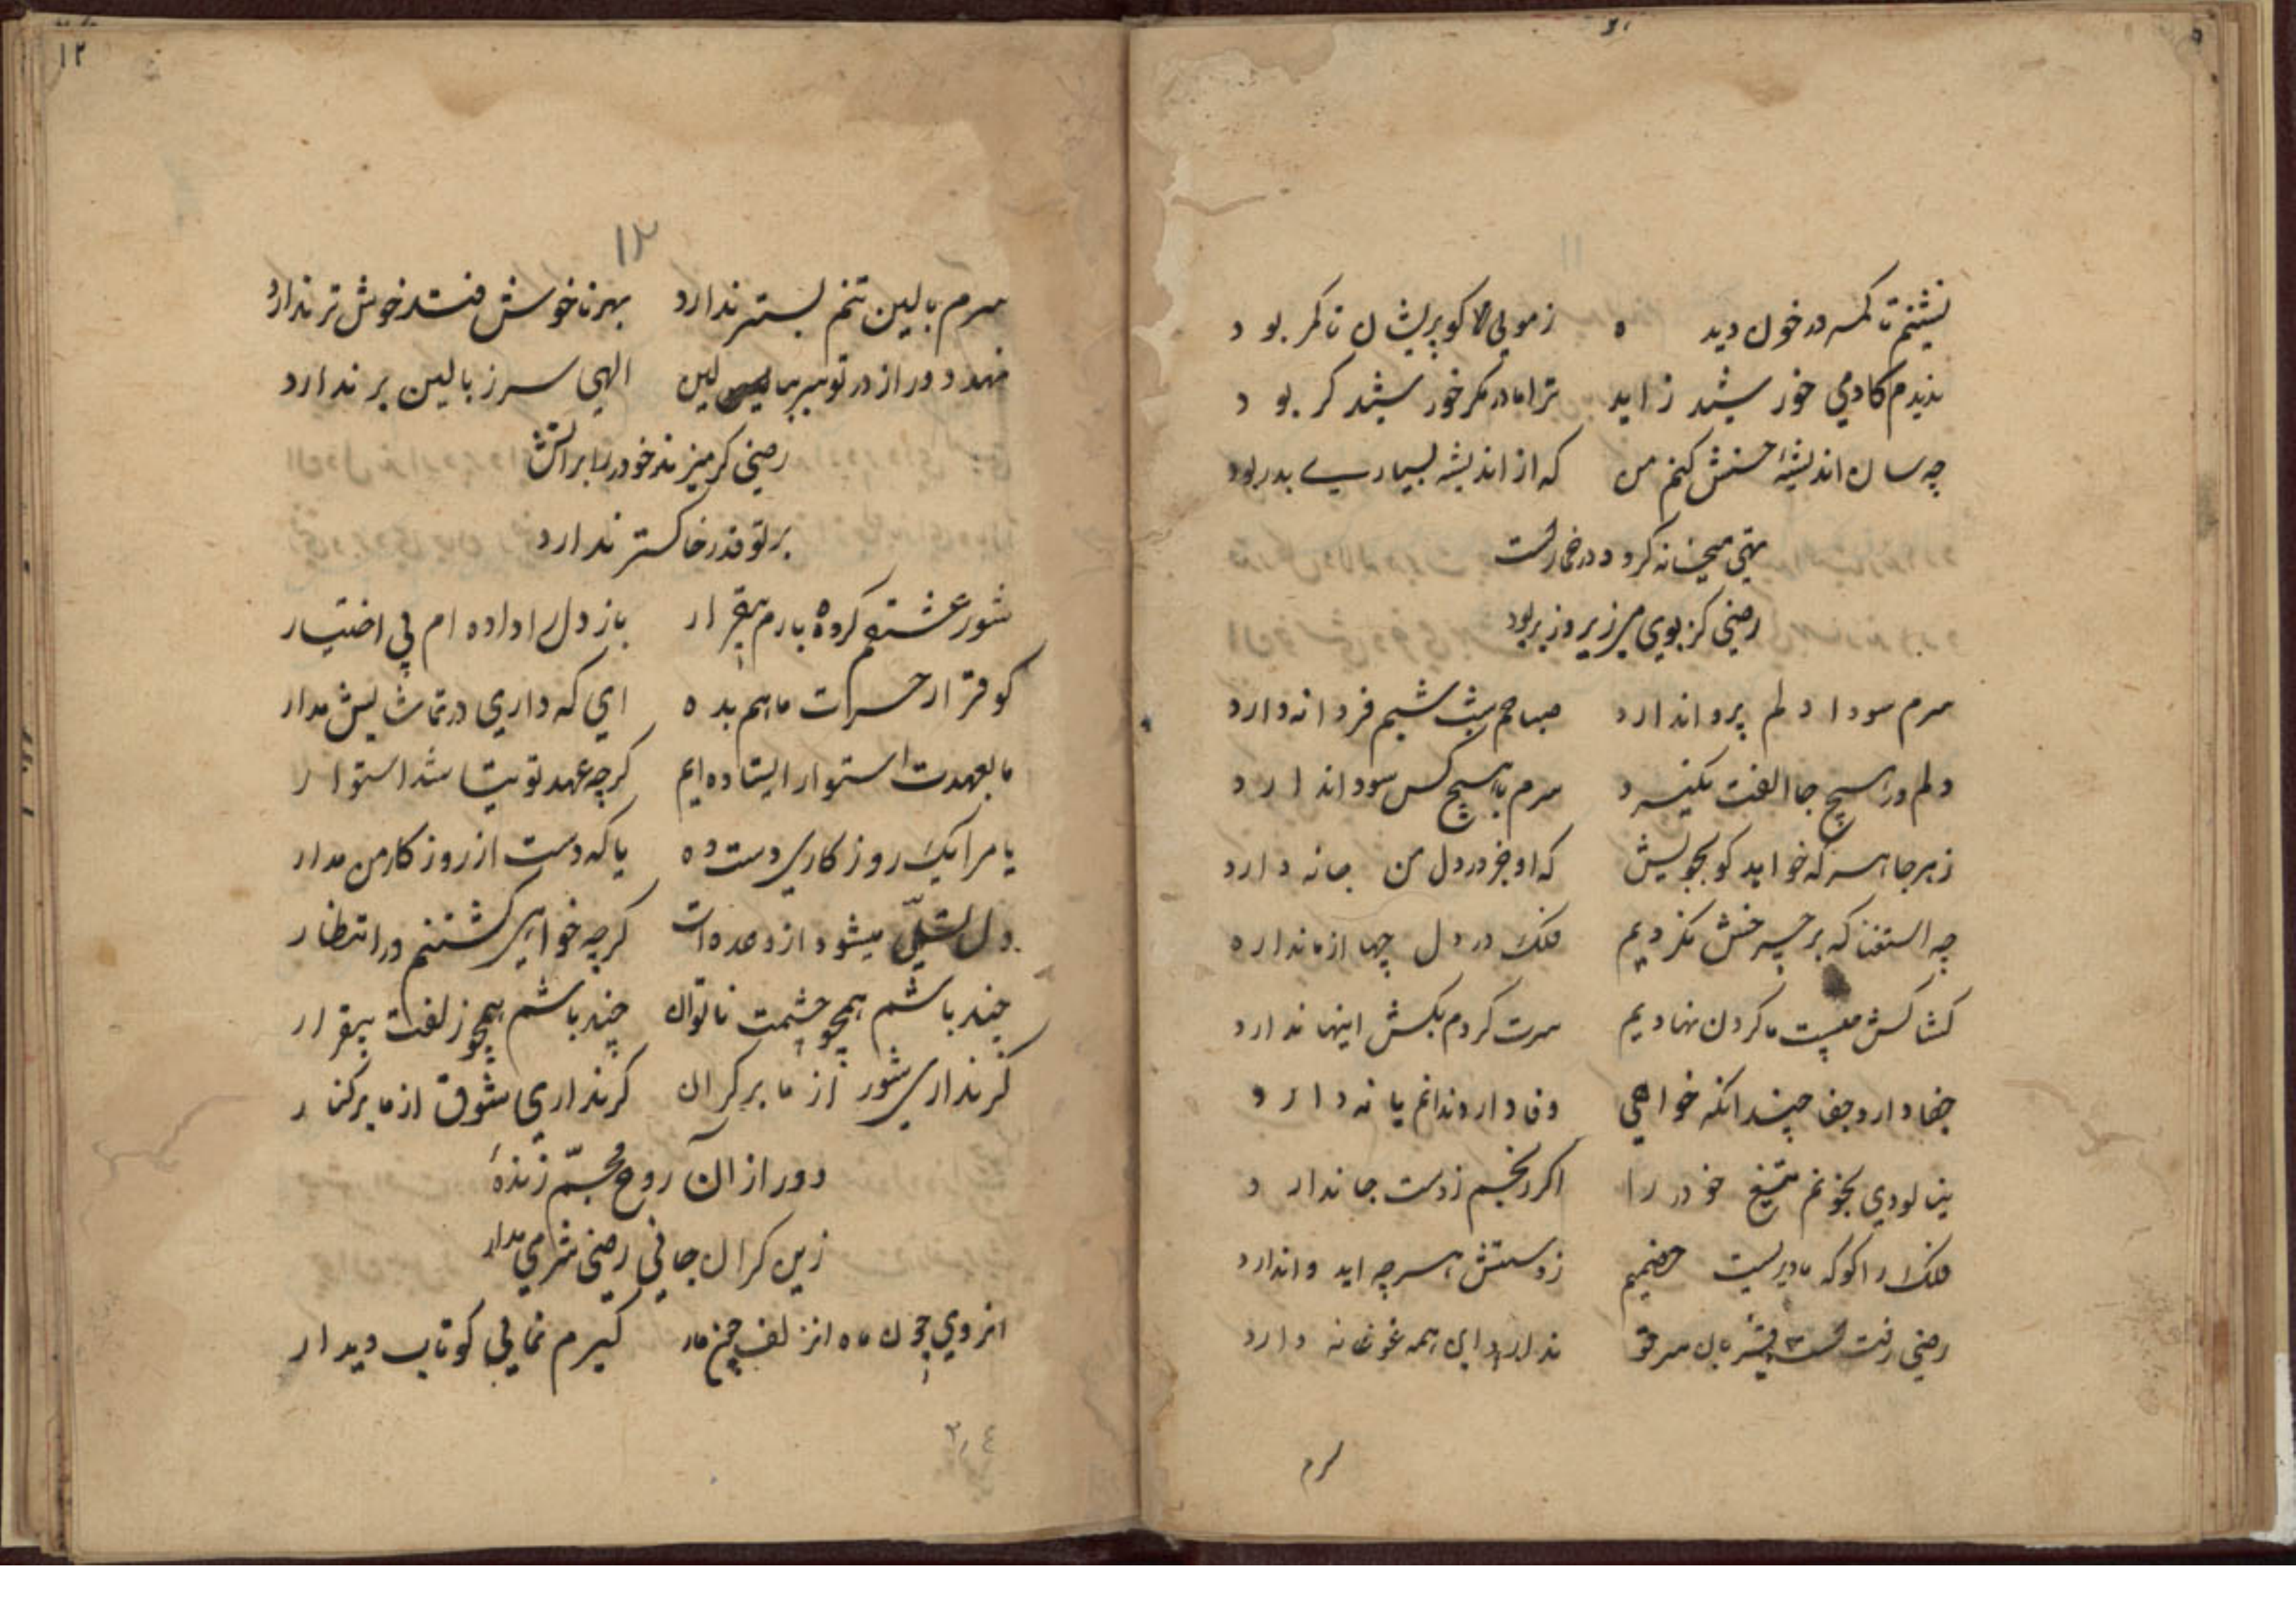 نشینم تا کمر در خون دیده زمویی کو پریشان تا کمر بود
ندیدم کادمی خورشید زاید ترا مادر مگر خورشید گر بود
چه سان اندیشهٔ حسنش کنم من که از اندیشه بسیاری بدر بود
تهی میخانه کرد و در خمارست
رضی کز بوی می زیر و زبر بود
سرم سودا دلم پروا ندارد صباحم شب شبم فردا ندارد
دلم در هیچ جا الفت نگیرد سرم با هیچ کس سودا ندارد
زهر جا هر که خواهد کو بجویش که او جز در دل من جا ندارد
چه استغنا که بر چرخش نکردیم فلک در دل چها از ما ندارد
کشاکش چیست ما گردن نهادیم سرت گردم بکش اینها ندارد
جفا دارد جفا چندانکه خواهی وفا دارد ندانم یا ندارد
نیالودی بخونم تیغ خود را اگر رنجم ز دست جا ندارد
فلک را کو که ما دیریست خصمیم ز دستش هر چه آید وا ندارد
رضی رفت
ندارد این همه غوغا ندارد
سرم
۱۲
۱۲
سرم بالین تنم بستر ندارد بهر ناخوش فتد خوش تر ندارد
نهد دور از در تو سر ببالین الهی سر ز بالین بر ندارد
رضی گر میزند خود را بر آتش
بر تو قدر خاکستر ندارد
شور عشقم کرده بازم بیقرار باز دل را داده ام بی اختیار
کو قرار حسرات ما هم بده ای که داری در تماشایش مدار
ما بعهدت استوار ایستاده ایم گرچه عهد تو بما نشد استوار
یا مرا یک روز کاری دست ده یا که دست از روزکار من مدار
دل تسلی میشود از وعده ات گرچه خواهی کشتنم در انتظار
چند باشم همچو چشمت ناتوان چند باشم همچو زلفت بیقرار
گر نداری شور از ما بر کران گر نداری شوق از ما بر کنار
دور از آن روح مجسم زندهٔ
زین گران جانی رضی شرمی مدار
از روی چون ماه از زلف چون مار گیرم نمایی کو تاب دیدار